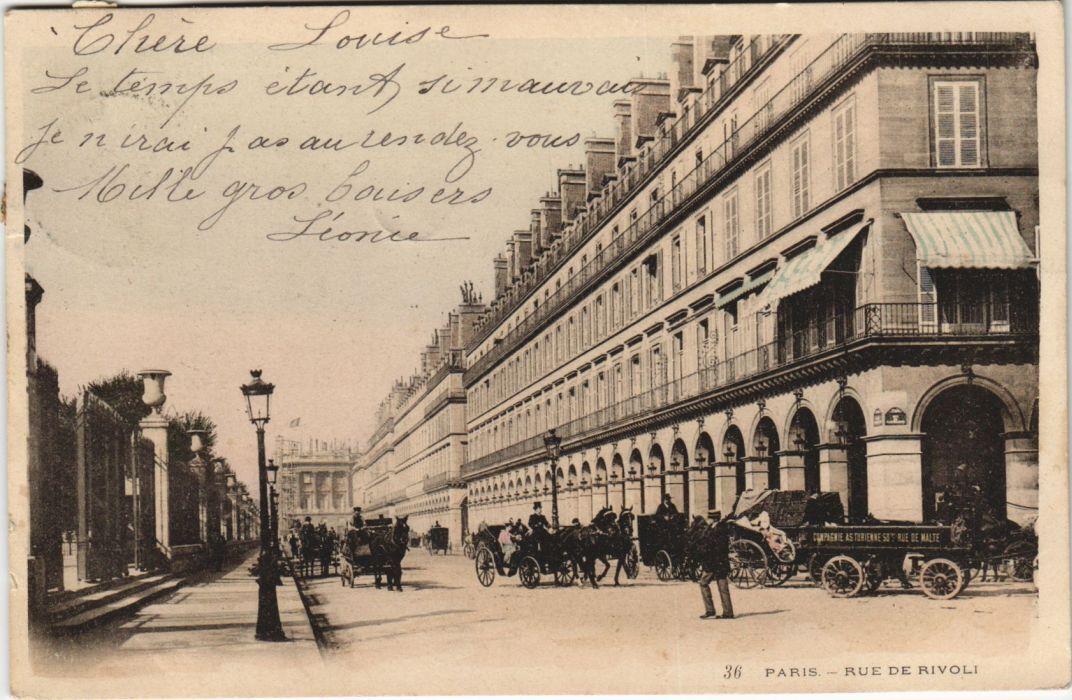 Chère Louise
Le temps étant si mauvais
Je n'irai pas au rendez-vous
Mille gros baisers
Léonie
COMPAGNIE ASTURIENNE 50 RUE DE MALTE
36 PARIS. — RUE DE RIVOLI